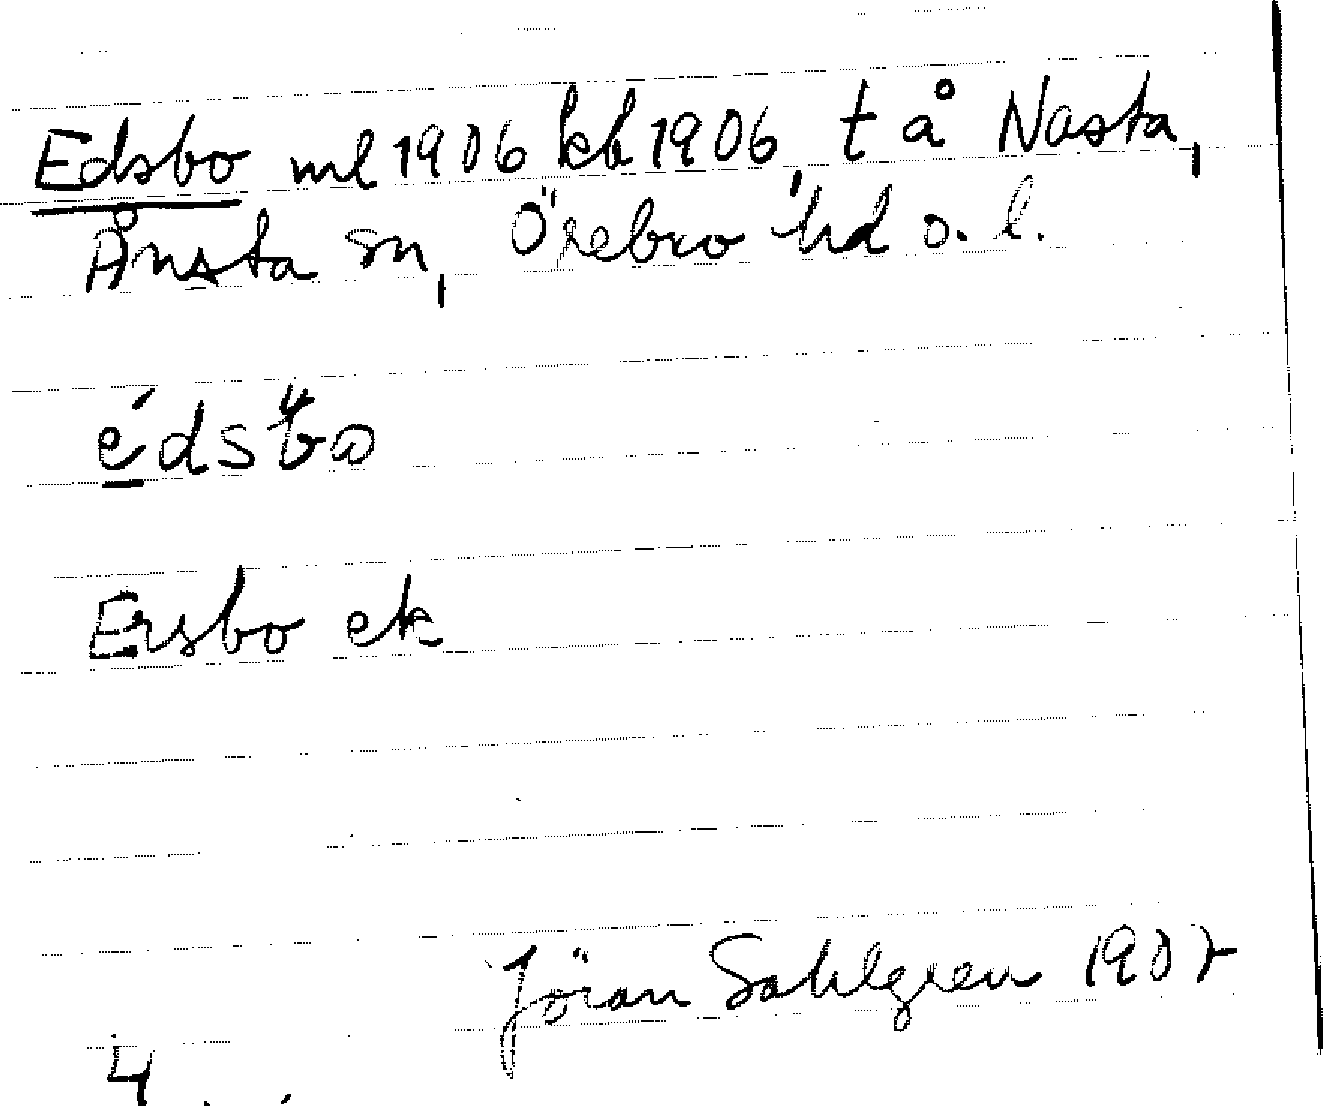 Edsbo ml 1906 kb 1906 t å Nasta,
Ånsta sn, Örebro hd ö. l.
édsbo
Ersbo ek
Jöran Sahlgren 1907
4